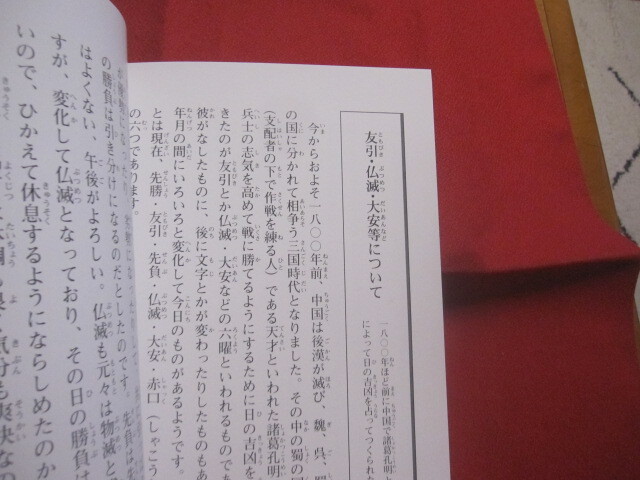 友引・仏滅・大安等について
一八〇〇年ほど前に中国で諸葛孔明
によって日の吉凶を占ってつくられた
今からおよそ一八〇〇年前、中国は後漢が滅び、魏、呉、
の国に分かれて相争う三国時代となりました。その中の蜀の
(支配者の下で作戦を練る人)である天才といわれた諸葛孔明
兵士の志気を高めて戦に勝てるようにするために日の吉凶を
きたのが友引とか仏滅・大安などの六曜といわれるものであ
彼がなしたものに、後に文字とかが変わったりしたものもあ
年月の間にいろいろと変化して今日のものがあるようです。
とは現在、先勝・友引・先負・仏滅・大安・赤口(しゃこう
の六つであります。
の勝負は引き分けになるのだとしたのです。先負は
はよくない、午後がよろしい。仏滅も元々は物滅と
すが、変化して仏滅となっており、その日の勝負は
いので、ひかえて休息するようにならしめたのか